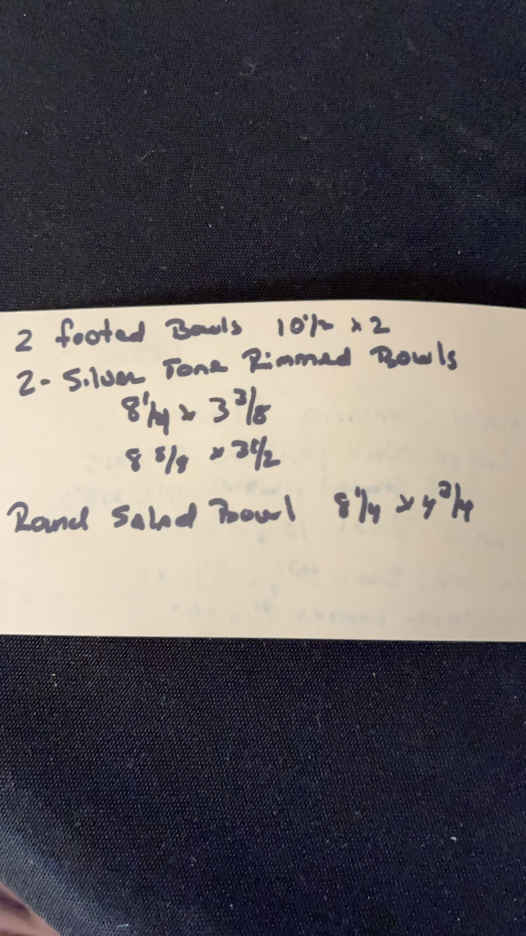 2 footed Bowls 10 1/2 x 2
2- Silver Tone Rimmed Bowls
8 1/4 x 3 3/8
8 5/8 x 3 1/2
Round Salad Bowl 8 1/4 x 4 3/4